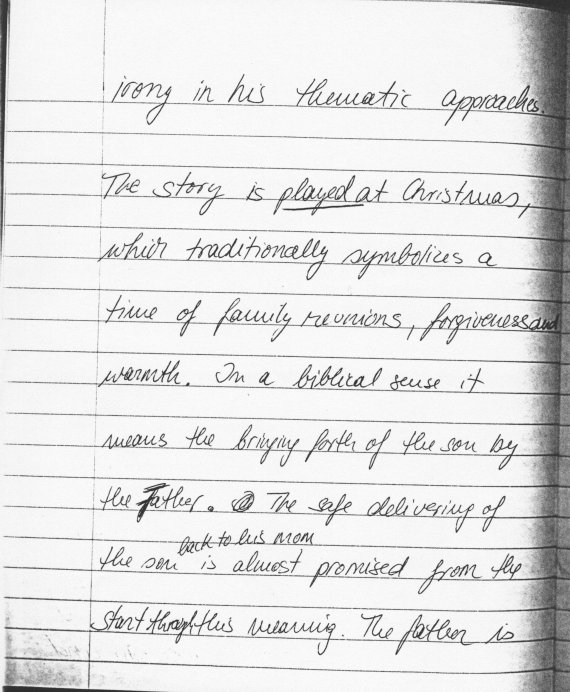 irony in his thematic approaches.
The story is played at Christmas,
which traditionally symbolizes a
time of family reunions, forgiveness and
warmth. In a biblical sense it
means the bringing forth of the son by
the Father. The safe delivering of
back to his mom
the son is almost promised from the
start through this meaning. The father is